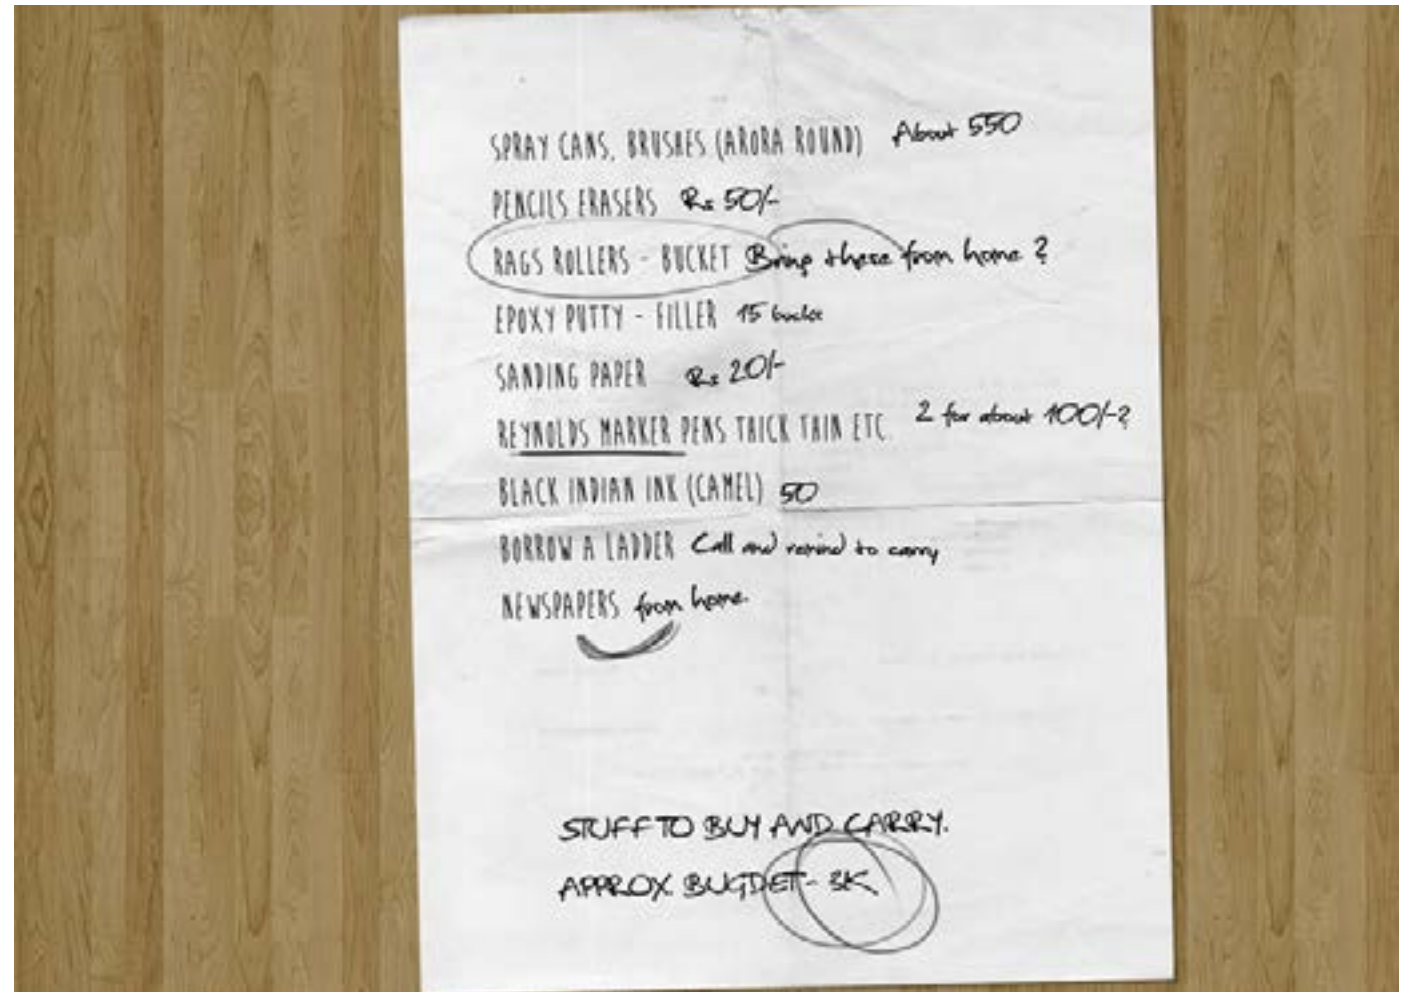 SPRAY CANS, BRUSHES (ARORA ROUND) About 550
PENCILS ERASERS Rs 50/-
RAGS ROLLERS - BUCKET Bring these from home ?
EPOXY PUTTY - FILLER 15 bucks
SANDING PAPER Rs 20/-
REYNOLDS MARKER PENS THICK THIN ETC 2 for about 100/-?
BLACK INDIAN INK (CAMEL) 50
BORROW A LADDER Call and remind to carry
NEWSPAPERS from home.
STUFF TO BUY AND CARRY.
APPROX. BUGDET - 3K